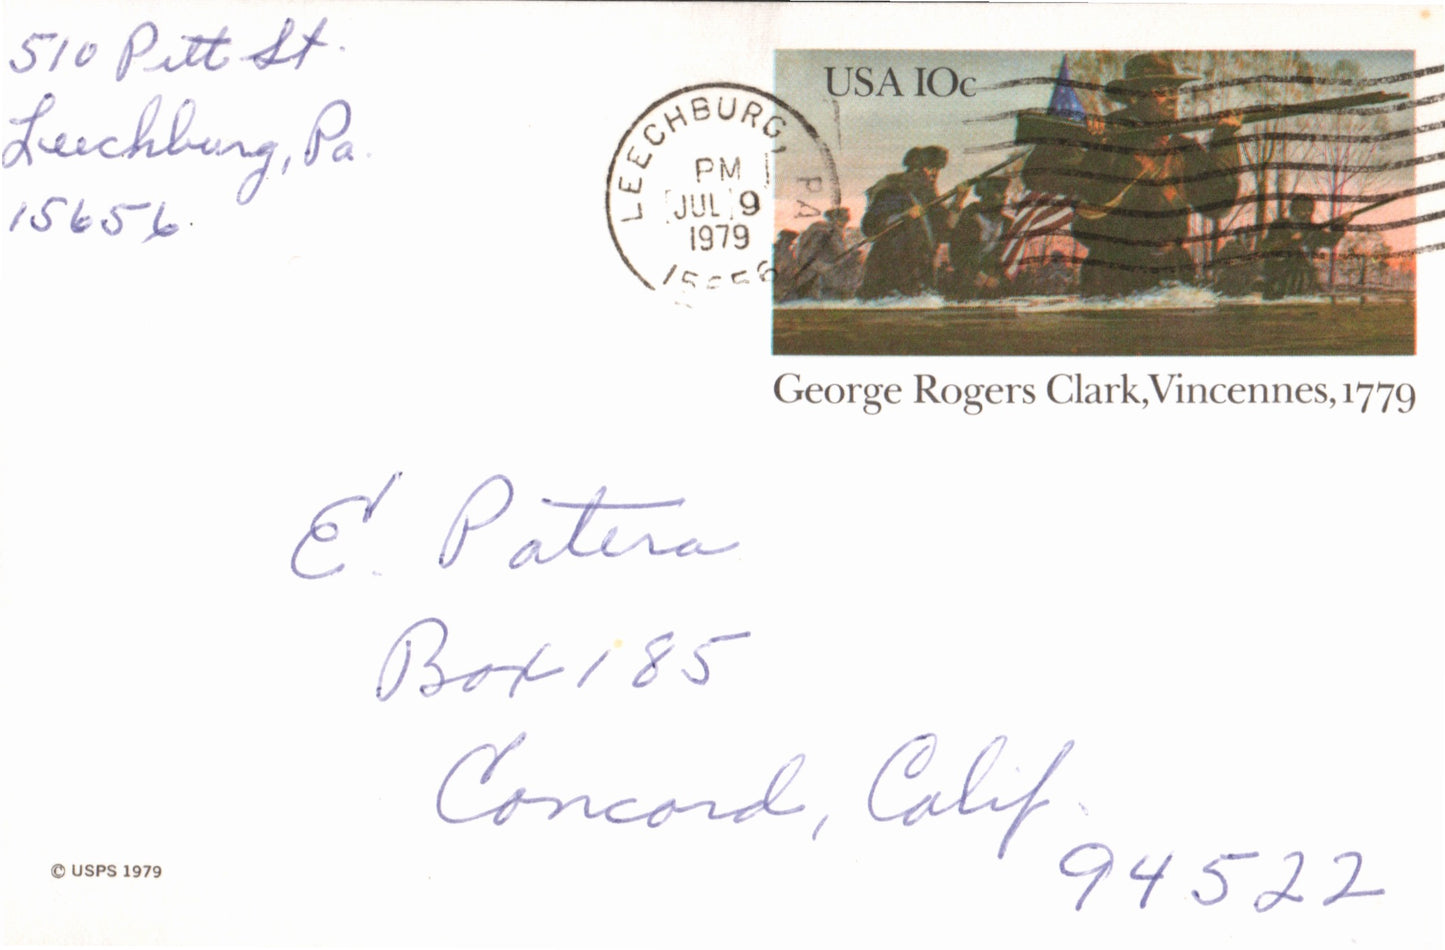 510 Pitt St.
Leechburg, Pa.
15656
LEECHBURG, PA
PM
JUL 9
1979
15656
USA 10c
George Rogers Clark, Vincennes, 1779
E. Patera
Box 185
Concord, Calif.
94522
© USPS 1979